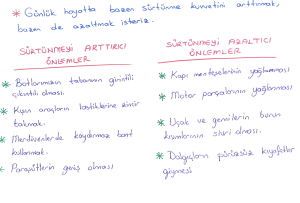 * Günlük hayatta bazen sürtünme kuvvetini arttırmak,
bazen de azaltmak isteriz.
SÜRTÜNMEYİ ARTTIRICI
ÖNLEMLER
* Botlarımızın tabanının girintili
çıkıntılı olması.
* Kışın araçların lastiklerine zincir
takmak.
* Merdivenlerde kaydırmaz bant
kullanmak.
* Paraşütlerin geniş olması
SÜRTÜNMEYİ AZALTICI
ÖNLEMLER
* Kapı menteşelerinin yağlanması
* Motor parçalarının yağlanması
* Uçak ve gemilerin burun
kısımlarının sivri olması.
* Dalgıçların pürüzsüz kıyafetler
giymesi